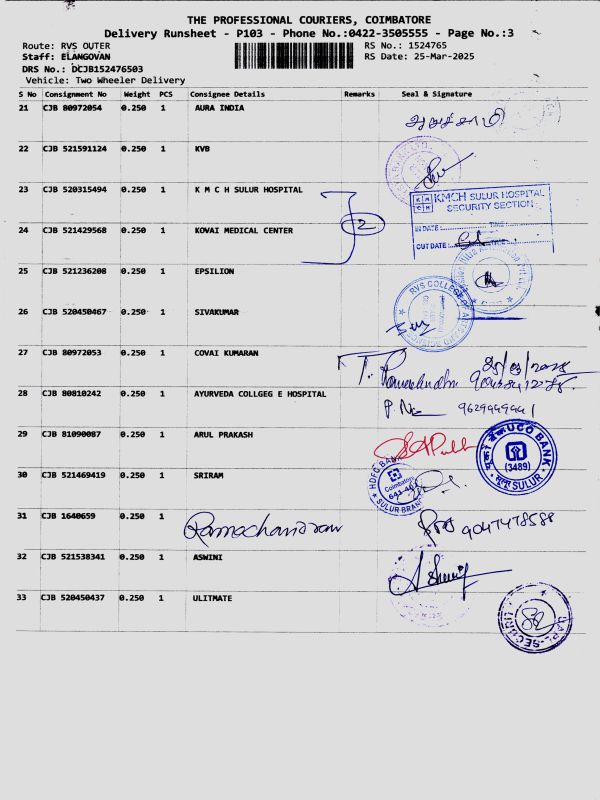 THE PROFESSIONAL COURIERS, COIMBATORE
Delivery Runsheet - P103 - Phone No.:0422-3505555 - Page No.:3
Route: RVS OUTER RS No.: 1524765
Staff: ELANGOVAN RS Date: 25-Mar-2025
DRS No.: DCJB152476503
Vehicle: Two Wheeler Delivery
S No Consignment No Weight PCS Consignee Details Remarks Seal & Signature
21 CJB 80972054 0.250 1 AURA INDIA
22 CJB 521591124 0.250 1 KVB
23 CJB 520315494 0.250 1 K M C H SULUR HOSPITAL
KMCH SULUR HOSPITAL
SECURITY SECTION
IN DATE : TIME :
OUT DATE : TIME :
2
24 CJB 521429568 0.250 1 KOVAI MEDICAL CENTER
25 CJB 521236208 0.250 1 EPSILION
RVS COLLEGE OF
26 CJB 520450467 0.250 1 SIVAKUMAR
27 CJB 80972053 0.250 1 COVAI KUMARAN
28 CJB 80810242 0.250 1 AYURVEDA COLLGEG E HOSPITAL
29 CJB 81090087 0.250 1 ARUL PRAKASH
UCO BANK
(3489)
SULUR
30 CJB 521469419 0.250 1 SRIRAM
HDFC BANK
Coimbatore
SULUR BRANCH
31 CJB 1640659 0.250 1 Ramachandran 9047478588
32 CJB 521538341 0.250 1 ASWINI
33 CJB 520450437 0.250 1 ULITMATE